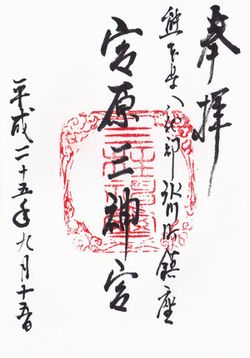 奉拝
熊本県八代郡氷川町鎮座
宮原三神宮
平成二十五年九月十五日